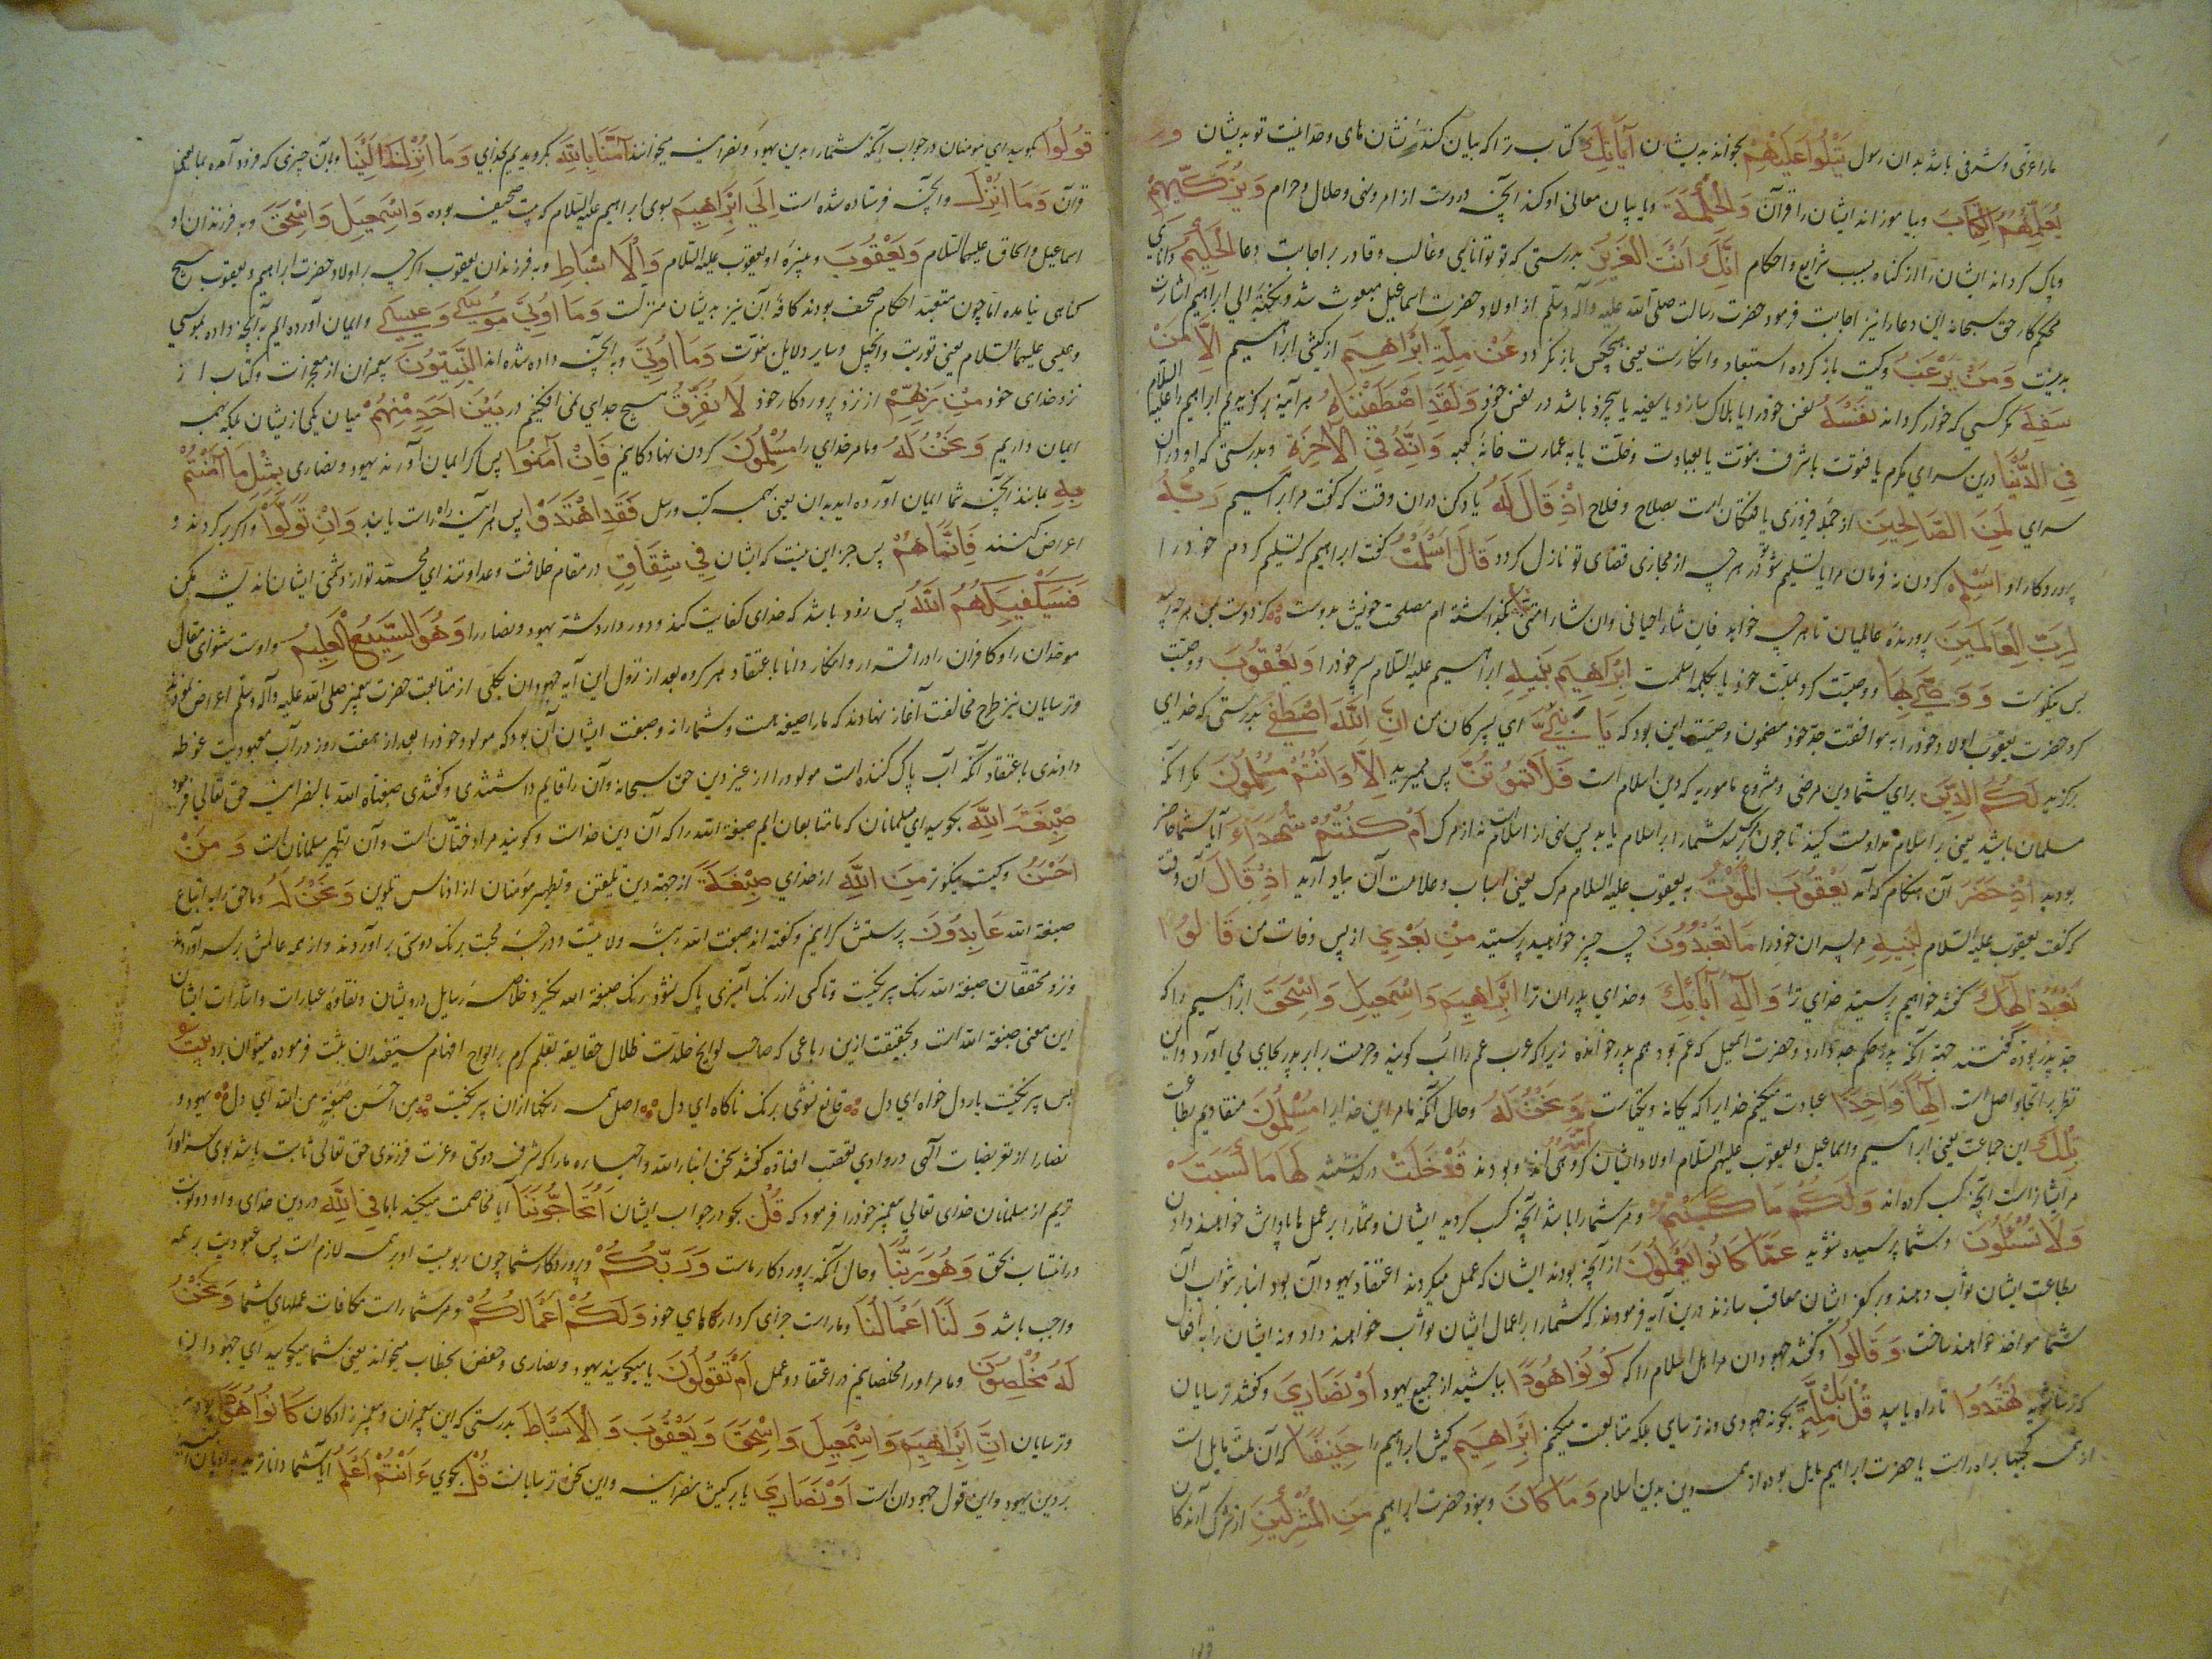 ما را عزتی و شرفی باشد بدان رسول یَتْلُوا عَلَیْهِمْ بخواند بدیشان آیَاتِكَ کتاب ترا که بیان کننده نشان های وحدانیت تو بدیشان وَ
یُعَلِّمُهُمُ الْکِتَابَ و بیاموزاند ایشان را قرآن وَالْحِکْمَةَ و بیان معانی او کند آنچه دروست از امر و نهی و حلال و حرام وَیُزَکِّیهِمْ
و پاک گرداند ایشان را از گناه بسبب شرایع و احکام اِنَّكَ اَنْتَ الْعَزِیزُ بدرستی که تو توانایی و غالب و قادر بر اجابت دعا الْحَکِیمُ دانای
محکم کار حق سبحانه این دعا را نیز اجابت فرمود حضرت رسالت صلی الله علیه وآله وسلم از اولاد حضرت اسماعیل مبعوث شد
وَمَنْ یَرْغَبُ وکیست باز کرده استبعاد و انکارست یعنی هیچکس باز نگردد عَنْ مِلَّةِ اِبْرَاهِیمَ از کیش ابراهیم اِلَّا مَنْ
سَفِهَ مگر کسی که خوار گرداند نَفْسَهُ نفس خود را یا هلاک سازد یا سفیه یا بیخرد باشد در نفس خود وَلَقَدِ اصْطَفَیْنَاهُ هرآینه برگزیدیم ابراهیم را علیه السلام
فِی الدُّنْیَا درین سرای مکرم یا فتوت باشرف نبوت یا بعبادت و خلت یا به عمارت خانه کعبه وَاِنَّهُ فِی الْآخِرَةِ و بدرستی که او در آن
سرای لَمِنَ الصَّالِحِینَ از جمله فیروزی یافتگان است بصلاح و فلاح اِذْ قَالَ لَهُ یاد کن در آن وقت که گفت مر ابراهیم رَبُّهُ
پروردگار او اَسْلِمْ گردن نه فرمان مرا یا تسلیم شو در هر چه از مجاری قضای تو نازل گردد قَالَ اَسْلَمْتُ گفت ابراهیم که تسلیم کردم خود را
لِرَبِّ الْعَالَمِینَ پرورنده عالمیان تا هرچه خواهد فان شاء احیانی وان شاء بگذاشته ام مصلحت خویش بدوست
بس نیکوست وَوَصَّی بِهَا و وصیت کرد بملت خود یا بکلمه اسلمت اِبْرَاهِیمُ بَنِیهِ ابراهیم علیه السلام پسر خود را وَیَعْقُوبُ و وصیت
کرد حضرت یعقوب اولاد خود را به موافقت جد خود مضمون وصیت این بود که یَا بَنِیَّ ای پسرکان من اِنَّ اللَّهَ اصْطَفَی بدرستی که خدای
برگزید لَکُمُ الدِّینَ برای شما دین مرضی و مشروع مامور به که دین اسلام است فَلَا تَمُوتُنَّ پس نمیرید اِلَّا وَاَنْتُمْ مُسْلِمُونَ مگر آنکه
مسلمان باشید یعنی بر اسلام مداومت کنید تا چون مرگ رسد شما را بر اسلام یابد پس نهی از اسلام نه از مرگ اَمْ کُنْتُمْ شُهَدَاءَ آیا شما حاضر
بودید اِذْ حَضَرَ آن هنگام که آمد یَعْقُوبَ الْمَوْتُ به یعقوب علیه السلام مرگ یعنی اسباب و علامت آن بیاد آرید اِذْ قَالَ آن وقت
که گفت یعقوب علیه السلام لِبَنِیهِ مر پسران خود را مَا تَعْبُدُونَ چه چیز خواهید پرستید مِنْ بَعْدِی از پس وفات من قَالُوا
نَعْبُدُ اِلٰهَكَ گفتند خواهیم پرستید خدای ترا وَاِلٰهَ آبَائِكَ و خدای پدران ترا اِبْرَاهِیمَ وَاِسْمٰعِیلَ وَاِسْحٰقَ ابراهیم را که
جد پدر بوده گفتند جهة آنکه پدر حکم جد دارد و حضرت اسمعیل که عم بود هم پدر خوانده زیرا که عرب عم را اب گویند و حرمت برابر پدر بجای می آورد و این
نظر بر اتحاد اصل است اِلٰهًا وَاحِدًا عبادت میکنیم خدایرا که یگانه و یکتاست وَنَحْنُ لَهُ و حال آنکه ما مر این خدایرا مُسْلِمُونَ منقادیم بطاعت
تِلْكَ این جماعت یعنی ابراهیم و اسماعیل و یعقوب علیهم السلام و اولاد ایشان اُمَّةٌ گروهی اند و بودند قَدْ خَلَتْ درگذشتند لَهَا مَا کَسَبَتْ
مر ایشانراست آنچه کسب کرده اند وَلَکُمْ مَا کَسَبْتُمْ و مر شما را باشد آنچه کسب کردید ایشان و شما را بر عمل ما پاداش خواهند دادن
وَلَا تُسْئَلُونَ و شما پرسیده نشوید عَمَّا کَانُوا یَعْمَلُونَ از آنچه بودند ایشان که عمل میکردند اعتقاد یهود آن بود انبار ثواب آن
بطاعت ایشان ثواب دهند و بر کفر ایشان معاقب سازند درین آیه فرمودند که شما را بر اعمال ایشان ثواب نخواهند داد و نه ایشان را به افعال
شما مواخذ خواهند ساخت وَقَالُوا و گفتند جهودان مر اهل اسلام را که کُونُوا هُودًا بباشید از جمیع یهود اَوْ نَصَارَی و گفتند ترسایان
که ترسا شوید تَهْتَدُوا تا راه یابید قُلْ بَلْ مِلَّةَ بگو نه جهودی و نه ترسایی بلکه متابعت میکنیم اِبْرَاهِیمَ کیش ابراهیم را حَنِیفًا که آن ملت مایل است
از همه کجیها براه راست یا حضرت ابراهیم مایل بوده از همه دین بدین اسلام وَمَا کَانَ و نبود حضرت ابراهیم مِنَ الْمُشْرِکِینَ از شرک آرندگان
قُولُوا بگویید ای مومنان در جواب آنکه شما را بدین یهود و نصرانیه میخوانند آمَنَّا بِاللَّهِ بگرویدیم بخدای وَمَا اُنْزِلَ اِلَیْنَا و بآن چیزی که فرود آمده بما یعنی
قرآن وَمَا اُنْزِلَ و آنچه فرستاده شده است اِلَی اِبْرَاهِیمَ بسوی ابراهیم علیه السلام که بیست صحیفه بوده وَاِسْمٰعِیلَ وَاِسْحٰقَ و به فرزندان او
اسماعیل و اسحاق علیهما السلام وَیَعْقُوبَ و نبیره او یعقوب علیه السلام وَالْاَسْبَاطِ و به فرزندان یعقوب اگرچه بر اولاد حضرت ابراهیم و یعقوب هیچ
کتابی نیامده اما چون متعبد احکام صحف بودند گافه آن نیز بدیشان منزلست وَمَا اُوتِیَ مُوسٰی وَعِیسٰی و ایمان آورده ایم به آنچه داده بموسی
و عیسی علیهما السلام یعنی توریت و انجیل و سایر دلایل نبوت وَمَا اُوتِیَ و به آنچه داده شده اند النَّبِیُّونَ پیغمبران از معجزات و کتاب از
نزد خدای خود مِنْ رَبِّهِمْ از نزد پروردگار خود لَا نُفَرِّقُ هیچ جدای نمی افکنیم در بَیْنَ اَحَدٍ مِنْهُمْ میان یکی از ایشان بلکه بهمه
ایمان داریم وَنَحْنُ لَهُ و ما مر خدای را مُسْلِمُونَ گردن نهادگانیم فَاِنْ آمَنُوا پس اگر ایمان آورند یهود و نصاری بِمِثْلِ مَا آمَنْتُمْ
بِهِ بمانند آنچه شما ایمان آورده اید بدان یعنی بهمه کتب و رسل فَقَدِ اهْتَدَوْا پس هرآینه راه راست یابند وَاِنْ تَوَلَّوْا و اگر برگردند و
اعراض کنند فَاِنَّمَا هُمْ پس جز این نیست که ایشان فِی شِقَاقٍ در مقام خلافت و عداوتند ای محمد تو از دشمنی ایشان اندیشه مکن
فَسَیَکْفِیکَهُمُ اللَّهُ پس زود باشد که خدای کفایت کند و دور دارد شر یهود و نصارا را وَهُوَ السَّمِیعُ الْعَلِیمُ و اوست شنوای مقال
موحدان را و کافران را در اقرار و انکار دانا با عتقاد هر گروه بعد از نزول این آیه جهودان بکلی از متابعت حضرت پیغمبر صلی الله علیه وآله وسلم اعراض نمودند
و ترسایان نیز طرح مخالفت آغاز نهادند که ما را صبغه هست و شما را نه و صبغت ایشان آن بود که مولود خود را بعد از هفت روز در آب معمودیت غوطه
دادندی با عتقاد آنکه آب پاک کننده است مولود را از غیر دین حق سبحانه و آن را قایم داشتندی و گفتندی صبغناه الله بالنصرانیه حق تعالی فرمود
صِبْغَةَ اللَّهِ بگویید ای مسلمانان که ما متابعان ایم صبغة الله را که آن دین خداست و گویند مراد ختان است و آن تطهیر مسلمانان است وَمَنْ
اَحْسَنُ وکیست نیکوتر مِنَ اللَّهِ از خدای صِبْغَةً از جهة دین تلقین و تطهیر مومنان از ادناس تلوین وَنَحْنُ لَهُ و ما حق را به اتباع
صبغة الله عَابِدُونَ پرستش کرانیم و گفته اند صبغت الله رشته ولایت و در خم محبت برنگ دوستی برآوردند و از همه عالمش برسر آوردند
و نزد محققان صبغة الله رنگ پریخت و تا کسی از رنگ آمیزی پاک نشود رنگ صبغة الله نگیرد و خلاصه رسایل درویشان و نقاوه عبارات و اشارات ایشان
این معنی صبغة الله است و بحقیقت ازین رباعی که صاحب لوایح خلدت ظلال حقایقه بقلم کرم بر الواح افهام مستفیدان ثبت فرموده میتوان برد بیت
بس پریخت یار دل خواه ای دل قانع نشوی برنگ ناگاه ای دل اصل همه رنگها از آن پریخت من احسن صبغة من الله ای دل یهود و
نصارا از تعریضات الهی در وادی تعصب افتاده گفتند نحن ابناء الله و احباءه ما را که شرف دوستی و عزت فرزندی حق تعالی ثابت باشد بوی سزاوار
تریم از مسلمانان خدای تعالی پیغمبر خود را فرمود که قُلْ بگو در جواب ایشان اَتُحَاجُّونَنَا آیا مخاصمت میکنید با ما فِی اللَّهِ در دین خدای و او
در انتساب بحق وَهُوَ رَبُّنَا و حال آنکه پروردگار ماست وَرَبُّکُمْ و پروردگار شما چون ربوبیت او بر همه لازم است پس عبودیت بر همه
واجب باشد وَلَنَا اَعْمَالُنَا و ما راست جزای کردار کارهای خود وَلَکُمْ اَعْمَالُکُمْ و مر شما راست مکافات عملهای شما وَنَحْنُ
لَهُ مُخْلِصُونَ و ما مر او را مخلصانیم در اعتقاد و عمل اَمْ تَقُولُونَ یا میگویند یهود و نصاری و حفص بخطاب میخواند یعنی شما میگویید ای جهودان
و ترسایان اِنَّ اِبْرَاهِیمَ وَاِسْمٰعِیلَ وَاِسْحٰقَ وَیَعْقُوبَ وَالْاَسْبَاطَ بدرستی که این پیغمبران و پیغمبرزادگان کَانُوا هُودًا بودند
بر دین یهود و این قول جهودان است اَوْ نَصَارَی یا بر کیش نصرانیه و این سخن ترسایانست قُلْ بگوی ءَاَنْتُمْ اَعْلَمُ آیا شما داناترید